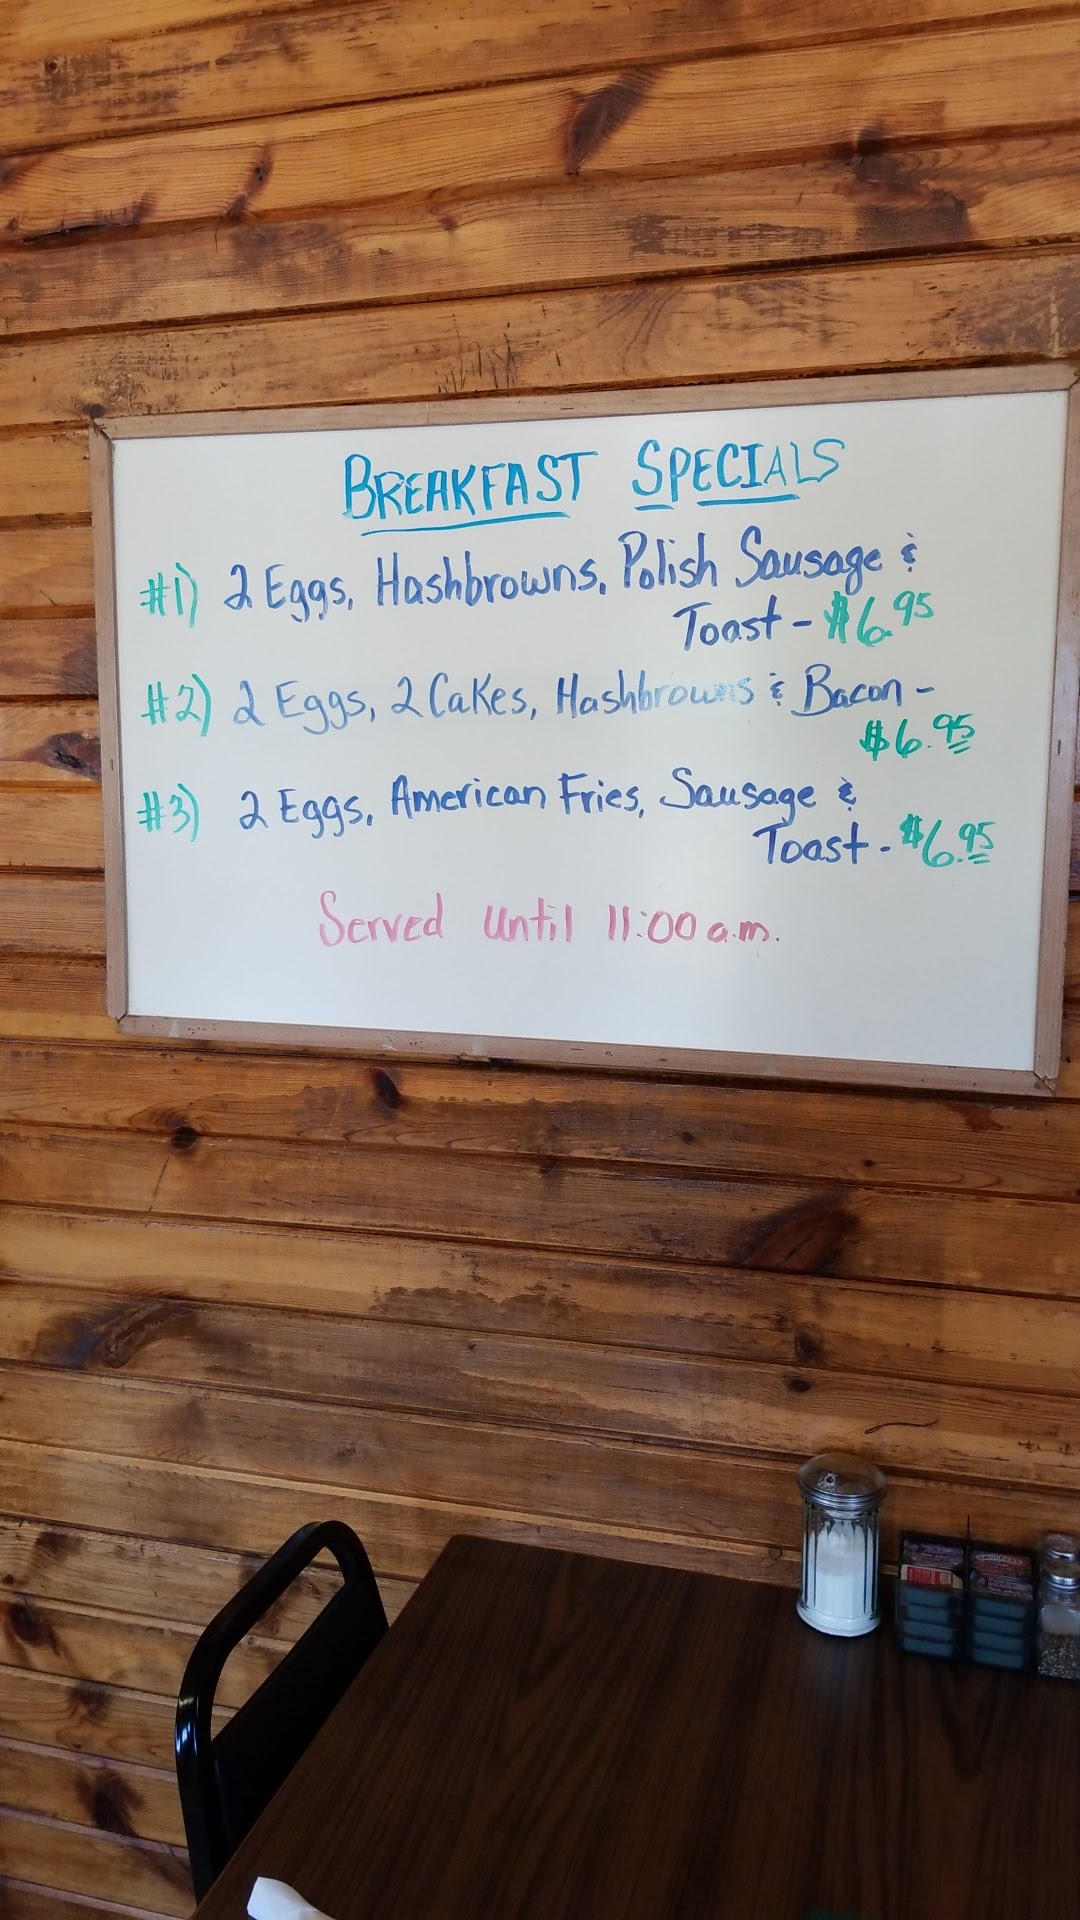 BREAKFAST SPECIALS
#1) 2 Eggs, Hashbrowns, Polish Sausage &
Toast - $6.95
#2) 2 Eggs, 2 Cakes, Hashbrowns & Bacon -
$6.95
#3) 2 Eggs, American Fries, Sausage &
Toast - $6.95
Served Until 11:00 a.m.